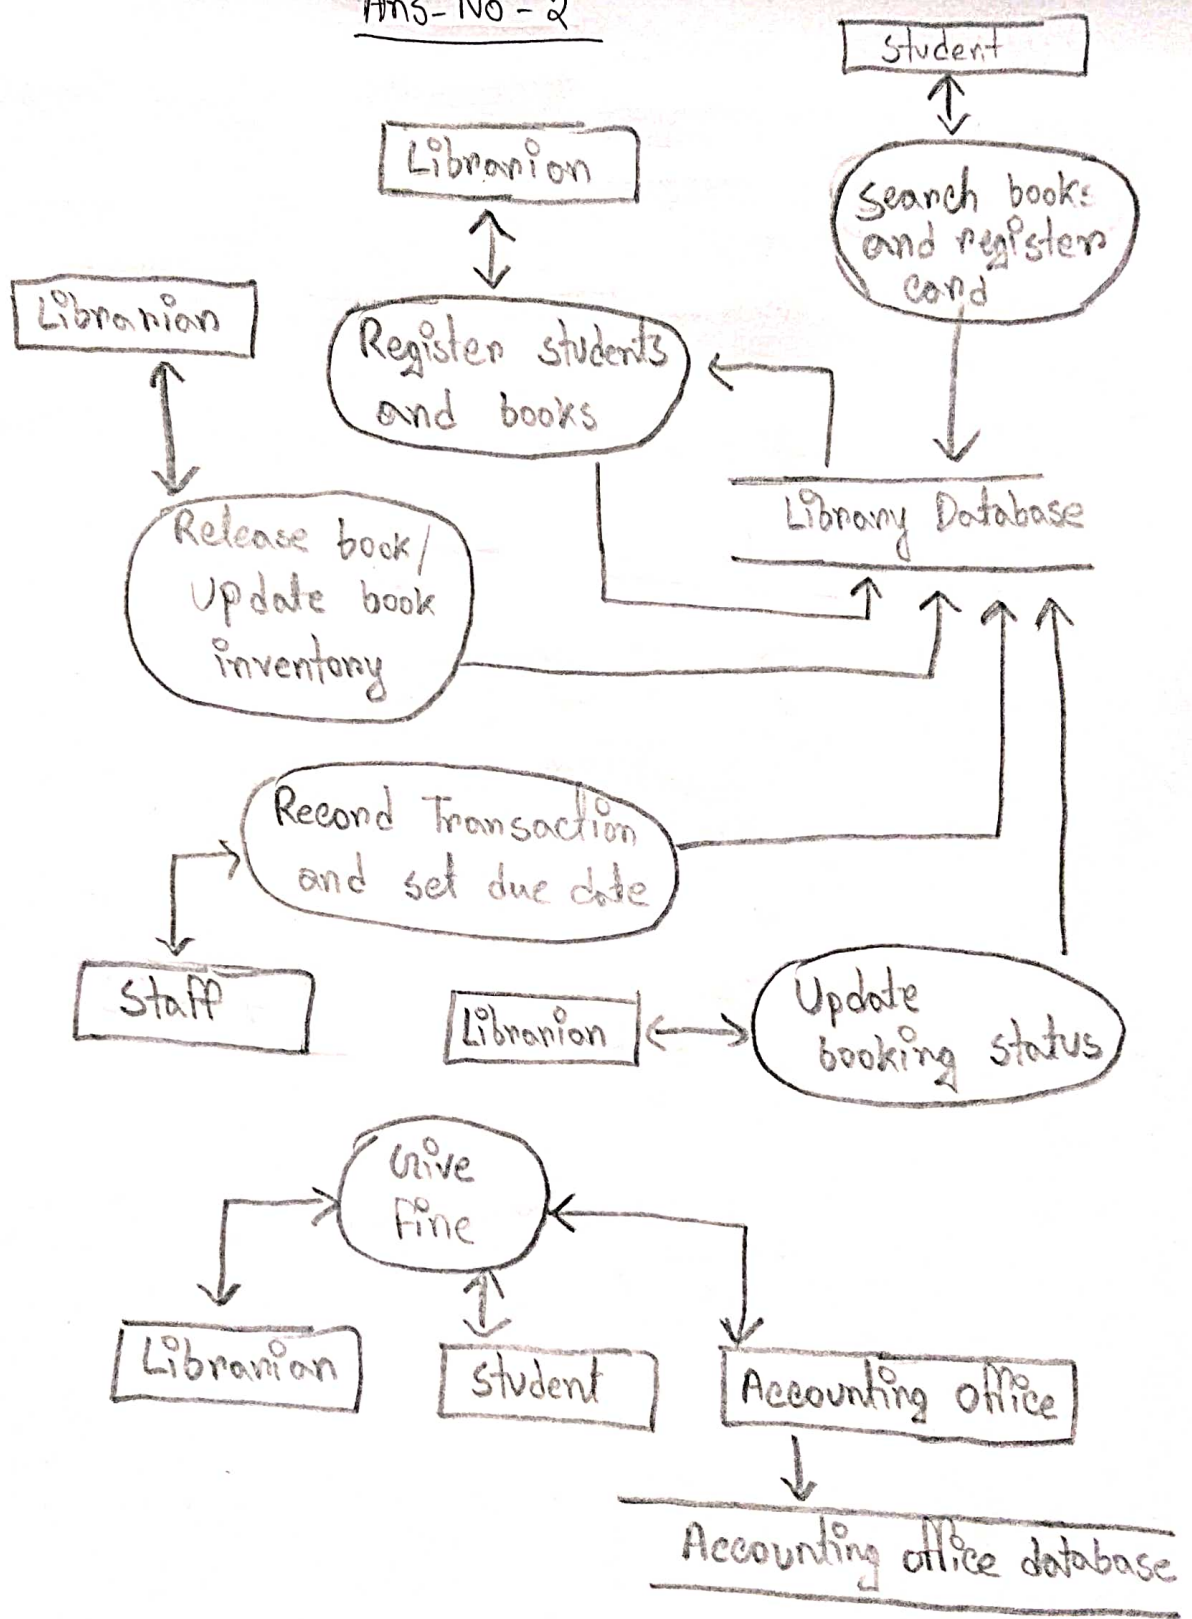 Ans-No-2
Student
Librarian
search books
and register
card
Librarian
Register students
and books
Library Database
Release book/
Update book
inventory
Record Transaction
and set due date
Staff
Librarian
Update
booking status
Give
Fine
Librarian
Student
Accounting Office
Accounting office database